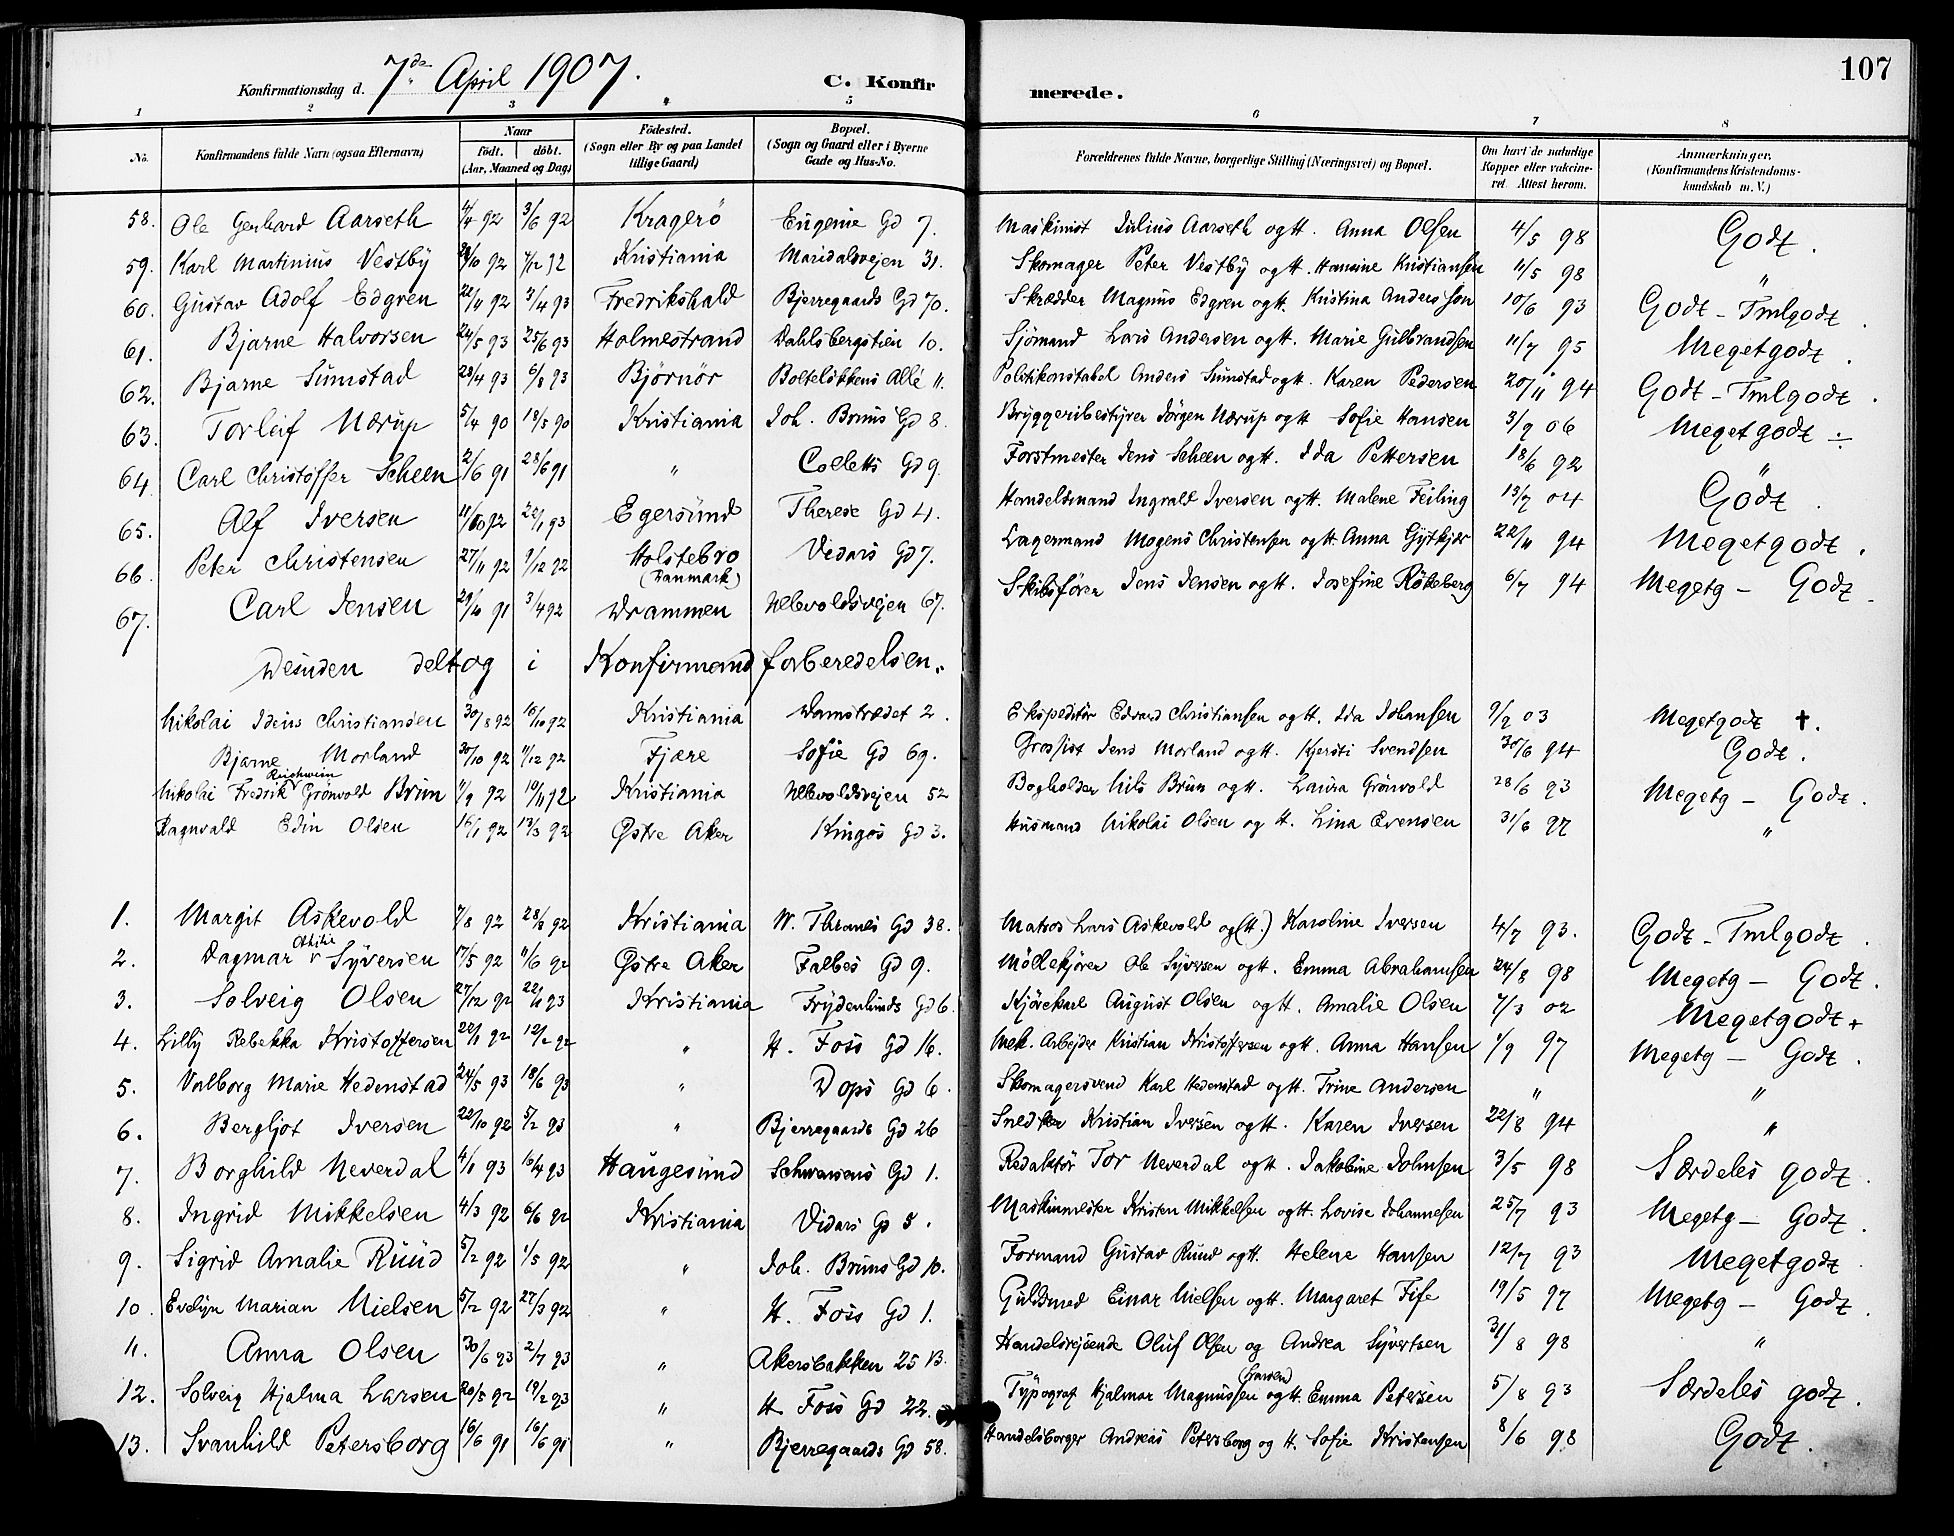 107
Konfirmationsdag d. 7de April 1907. C. Konfirmerede.
1 2 3 4 5 6 7 8
No. Konfirmandens fulde Navn (ogsaa Efternavn) Naar födt. döbt. (Aar, Maaned og Dag) Födested. (Sogn eller By og paa Landet tillige Gaard) Bopæl. (Sogn og Gaard eller i Byerne Gade og Hus-No. Forældrenes fulde Navne, borgerlige Stilling (Næringsvei) og Bopæl. Om havt de naturlige Kopper eller vakcineret. Attest herom. Anmærkninger. (Konfirmandens Kristendomskundskab m. V.)
58. Ole Gerhard Aarseth 4/4 92 3/6 92 Kragerö Eugenie Gd 7. Maskinist Julius Aarseth og H. Anna Olsen 4/5 98 Godt.
59. Karl Martinius Vestby 92 7/12 92 Kristiania Maridalsvejen 31. Skomager Peter Vestby og H. Hansine Kristiansen 11/5 98 "
60. Gustav Adolf Edgren 22/11 92 3/4 93 Fredrikshald Bjerregaards Gd 70. Skrædder Magnus Edgren og H. Kristina Andersson 10/6 93 Godt - Tmlgodt.
61. Bjarne Halvorsen 24/5 93 25/6 93 Holmestrand Dahlsbergstien 10. Sjömand Lars Andersen og H. Marie Gulbrandsen 11/7 95 Megetgodt.
62. Bjarne Sumstad 23/4 93 6/8 93 Björnör Bolteløkkens Allé 11. Politikonstabel Anders Sumstad og H. Karen Pedersen 20/11 94 Godt - Tmlgodt.
63. Torleif Nærup 5/4 90 18/5 90 Kristiania Joh. Bruns Gd 8. Bryggeribestyrer Jörgen Nærup og H Sofie Hansen 3/9 06 Megetgodt ÷
64. Carl Christoffer Scheen 2/6 91 28/6 91 " Colletts Gd 9. Forstmester Jens Scheen og H. Ida Pettersen 18/6 92 "
65. Alf Iversen 11/10 92 22/1 93 Egersund Therese Gd 4. Handelsmand Ingvald Iversen og H. Malene Feiling 13/7 04 Godt.
66. Peter Christensen 27/11 92 9/12 92 Holstebro (Danmark) Vidars Gd 7. Lagermand Mogens Christensen og H. Anna Gytkjær 22/11 94 Megetgodt.
67. Carl Jensen 29/10 91 3/4 92 Drammen Ullevoldsvejen 67. Skibsförer Jens Jensen og H. Josefine Rökeberg 6/7 94 Megetg - Godt.
Desuden deltog i Konfirmand forberedelsen.
Nikolai Ideus Christiansen 30/8 92 16/10 92 Kristiania Damstrædet 2. Ekspeditör Edvard Christiansen og H. Ida Johansen 9/9 03 Megetgodt +.
Bjarne Morland 30/10 92 11/12 92 Fjære Sofie Gd 69. Grossist Jens Morland og H. Kjersti Svendsen 30/6 94 Godt.
Nikolai Fredrik Reichwein Grönvold Brun 11/9 92 19/11 92 Kristiania Ullevoldsvejen 52 Bogholder Nils Brun og H. Laura Grönvold 28/6 93 Megetg - Godt.
Ragnvald Edin Olsen 16/1 92 13/3 92 Østre Aker Kingos Gd 3. Husmand Nikolai Olsen og H. Lina Evensen 31/6 97 "
1. Margit Askevold 7/8 92 28/8 92 Kristiania W. Thranes Gd 38. Matros Lars Askevold og (H.) Karoline Iversen 4/7 93. Godt - Tmlgodt.
2. Dagmar Othilie Syversen 17/5 92 11/6 92 Østre Aker Falbes Gd 9. Möllekjörer Ole Syversen og H. Emma Abrahamsen 24/8 98 Megetg - Godt.
3. Solveig Olsen 27/12 92 93 Kristiania Frydenlunds Gd 6. Kjörekarl August Olsen og H. Amalie Olsen 7/3 02 Megetgodt+
4. Lilly Rebekka Kristoffersen 22/1 92 12/2 92 " H. Foss Gd 16. Mek. Arbejder Kristian Kristoffersen og H. Anna Hansen 1/9 97 Megetg - Godt.
5. Valborg Marie Hedenstad 24/5 93 18/6 93 " Dops Gd 6. Skomagersvend Karl Hedenstad og H. Trine Andersen " "
6. Bergljot Iversen 22/10 92 5/2 93 " Bjerregaards Gd 26 Snedker Kristian Iversen og H. Karen Iversen 22/8 94 "
7. Borghild Neverdal 4/1 93 16/4 93 Haugesund Schwensens Gd 1. Redaktör Tor Neverdal og H. Jakobine Johnsen 3/5 98 Særdeles godt.
8. Ingrid Mikkelsen 4/3 92 6/6 92 Kristiania Vidars Gd 5. Maskinmester Kristen Mikkelsen og H. Lovise Johannesen 25/7 93 Megetg - Godt.
9. Sigrid Amalie Ruud 5/2 92 1/5 92 " Joh. Bruns Gd 10. Formand Gustav Ruud og H. Helene Hansen 12/7 93 Megetgodt.
10. Evelyn Marian Nielsen 5/2 92 27/3 92 " H. Foss Gd 1. Guldsmed Einar Nielsen og H. Margaret Fife 19/5 97 Megetg - Godt.
11. Anna Olsen 30/6 93 2/7 93 " Akersbakken 25 B. Handelsrejsende Oluf Olsen og Andrea Syvertsen 31/8 98 "
12. Solveig Hjalma Larsen 20/5 92 19/2 93 " H. Foss Gd 22. Typograf Hjalmar Magnussen (Larsen) og H. Emma Petersen 5/8 93 Særdeles godt.
13. Svanhild Petersborg 16/6 91 16/6 91 " Bjerregaards Gd 58. Handelsborger Andreas Petersborg og H. Sofie Kristensen 8/6 98 Godt.